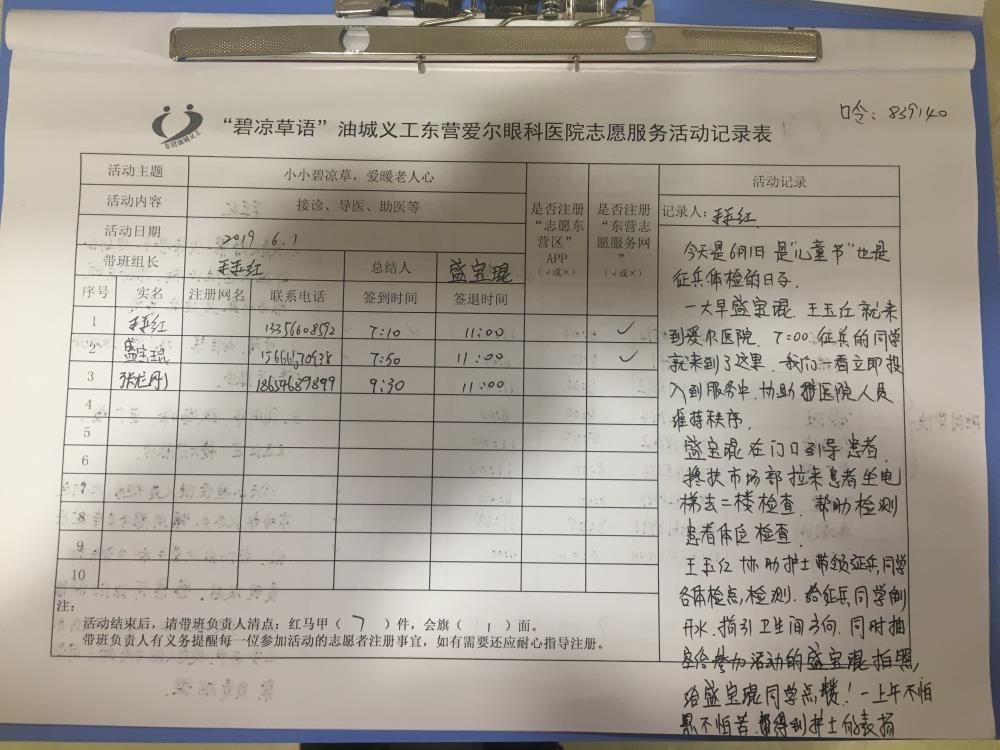 口令：839140
东营油城义工
“碧凉草语”油城义工东营爱尔眼科医院志愿服务活动记录表
活动主题 小小碧凉草，爱暖老人心
活动内容 接诊、导医、助医等
活动日期 2019.6.1
带班组长 总结人 盛宝琨
是否注册“志愿东营区”APP（√或×）
是否注册“东营志愿服务网”（√或×）
序号 实名 注册网名 联系电话 签到时间 签退时间
1 13356608592 7:10 11:00 ✓
2 盛宝琨 7:50 11:00 ✓
3 18654689899 9:30 11:00
4
5
6
7
8
9
10
注：
活动结束后，请带班负责人清点：红马甲（ 7 ）件，会旗（ 1 ）面。
带班负责人有义务提醒每一位参加活动的志愿者注册事宜，如有需要还应耐心指导注册。
活动记录
记录人：
今天是6月1日 是“儿童节”也是
征兵体检的日子.
一大早盛宝琨. 王玉红就来
到爱尔医院. 7:00征兵的同学
就来到了这里. 我们一看立即投
入到服务中. 协助 医院人员
维持秩序.
盛宝琨在门口引导患者.
搀扶市场部拉来患者坐电
梯去二楼检查. 帮助检测
患者体位检查.
王玉红协助护士带领征兵同学
各体检点,检测. 给征兵同学倒
开水. 指引卫生间方向. 同时抽
空给参加活动的盛宝琨拍照,
给盛宝琨同学点赞! 一上午不怕
累不怕苦. 得到护士的表扬